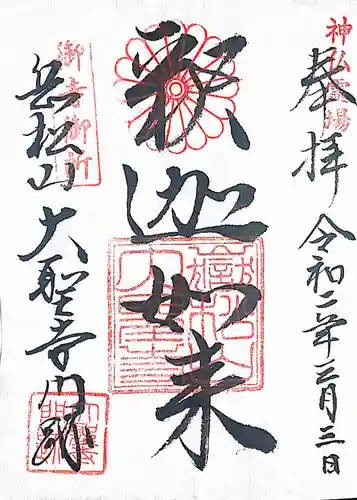 神仏霊場
奉拝
令和二年三月三日
釈迦如来
御寺御所
岳松山
大聖寺門跡